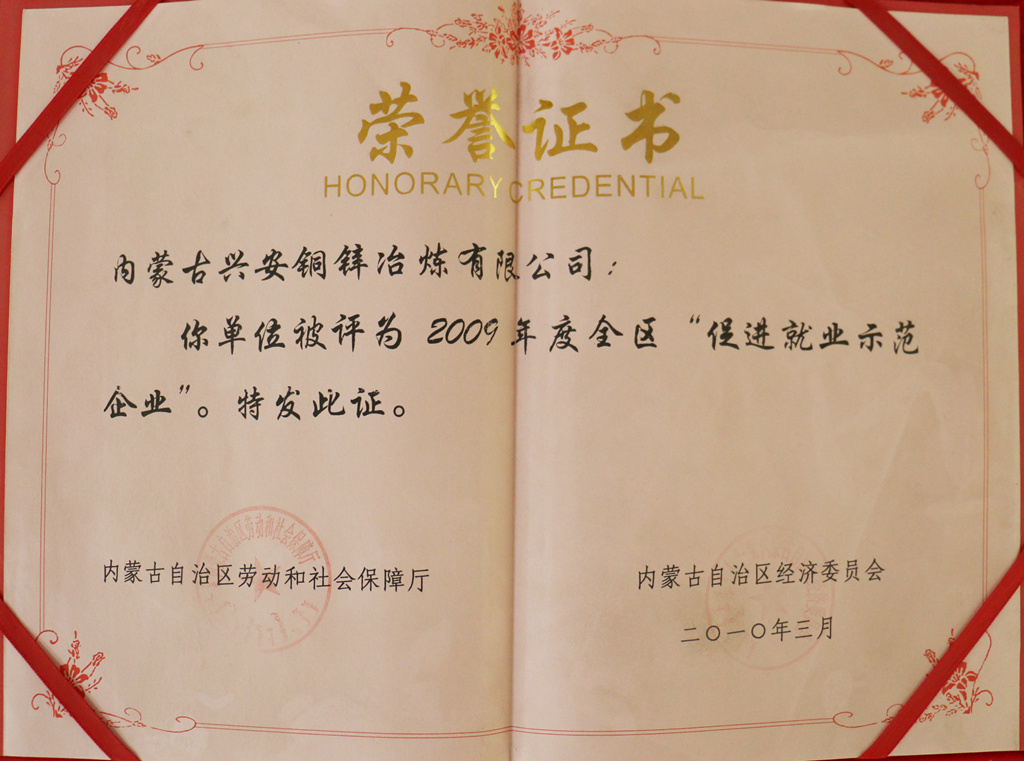 荣誉证书
HONORARY CREDENTIAL
内蒙古兴安铜锌冶炼有限公司：
你单位被评为 2009 年度全区“促进就业示范
企业”。特发此证。
内蒙古自治区劳动和社会保障厅
内蒙古自治区经济委员会
二〇一〇年三月